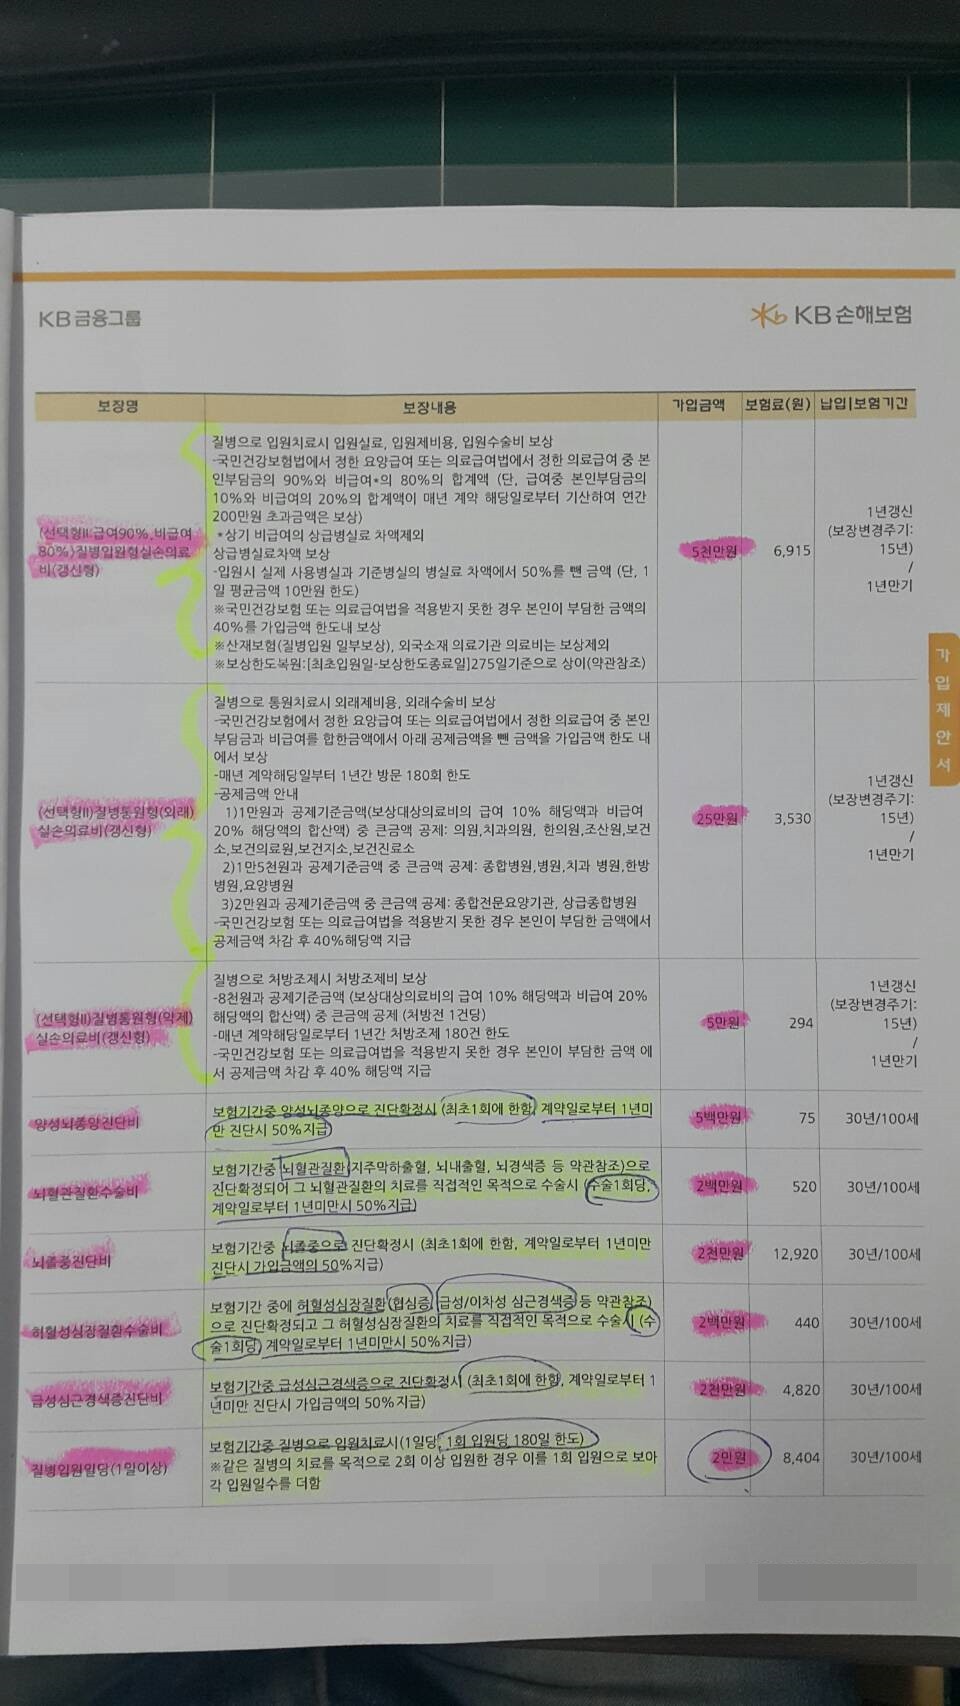 KB금융그룹
KB손해보험
보장명 보장내용 가입금액 보험료(원) 납입|보험기간
(선택형II 급여90%,비급여
80%)질병입원형실손의료
비(갱신형)
질병으로 입원치료시 입원실료, 입원제비용, 입원수술비 보상
-국민건강보험법에서 정한 요양급여 또는 의료급여법에서 정한 의료급여 중 본
인부담금의 90%와 비급여*의 80%의 합계액 (단, 급여중 본인부담금의
10%와 비급여의 20%의 합계액이 매년 계약 해당일로부터 기산하여 연간
200만원 초과금액은 보상)
*상기 비급여의 상급병실료 차액제외
상급병실료차액 보상
-입원시 실제 사용병실과 기준병실의 병실료 차액에서 50%를 뺀 금액 (단, 1
일 평균금액 10만원 한도)
※국민건강보험 또는 의료급여법을 적용받지 못한 경우 본인이 부담한 금액의
40%를 가입금액 한도내 보상
※산재보험(질병입원 일부보상), 외국소재 의료기관 의료비는 보상제외
※보상한도복원:[최초입원일-보상한도종료일]275일기준으로 상이(약관참조)
5천만원 6,915
1년갱신
(보장변경주기:
15년)
/
1년만기
(선택형II)질병통원형(외래)
실손의료비(갱신형)
질병으로 통원치료시 외래제비용, 외래수술비 보상
-국민건강보험에서 정한 요양급여 또는 의료급여법에서 정한 의료급여 중 본인
부담금과 비급여를 합한금액에서 아래 공제금액을 뺀 금액을 가입금액 한도 내
에서 보상
-매년 계약해당일부터 1년간 방문 180회 한도
-공제금액 안내
1)1만원과 공제기준금액(보상대상의료비의 급여 10% 해당액과 비급여
20% 해당액의 합산액) 중 큰금액 공제: 의원,치과의원, 한의원,조산원,보건
소,보건의료원,보건지소,보건진료소
2)1만5천원과 공제기준금액 중 큰금액 공제: 종합병원,병원,치과 병원,한방
병원,요양병원
3)2만원과 공제기준금액 중 큰금액 공제: 종합전문요양기관, 상급종합병원
-국민건강보험 또는 의료급여법을 적용받지 못한 경우 본인이 부담한 금액에서
공제금액 차감 후 40%해당액 지급
25만원 3,530
1년갱신
(보장변경주기:
15년)
/
1년만기
(선택형II)질병통원형(약제)
실손의료비(갱신형)
질병으로 처방조제시 처방조제비 보상
-8천원과 공제기준금액 (보상대상의료비의 급여 10% 해당액과 비급여 20%
해당액의 합산액) 중 큰금액 공제 (처방전 1건당)
-매년 계약해당일로부터 1년간 처방조제 180건 한도
-국민건강보험 또는 의료급여법을 적용받지 못한 경우 본인이 부담한 금액 에
서 공제금액 차감 후 40% 해당액 지급
5만원 294
1년갱신
(보장변경주기:
15년)
/
1년만기
양성뇌종양진단비
보험기간중 양성뇌종양으로 진단확정시 (최초1회에 한함, 계약일로부터 1년미
만 진단시 50%지급)
5백만원 75 30년/100세
뇌혈관질환수술비
보험기간중 뇌혈관질환(지주막하출혈, 뇌내출혈, 뇌경색증 등 약관참조)으로
진단확정되어 그 뇌혈관질환의 치료를 직접적인 목적으로 수술시 (수술1회당,
계약일로부터 1년미만시 50%지급)
2백만원 520 30년/100세
뇌졸중진단비
보험기간중 뇌졸중으로 진단확정시 (최초1회에 한함, 계약일로부터 1년미만
진단시 가입금액의 50%지급)
2천만원 12,920 30년/100세
허혈성심장질환수술비
보험기간 중에 허혈성심장질환(협심증, 급성/이차성 심근경색증 등 약관참조)
으로 진단확정되고 그 허혈성심장질환의 치료를 직접적인 목적으로 수술시 (수
술1회당, 계약일로부터 1년미만시 50%지급)
2백만원 440 30년/100세
급성심근경색증진단비
보험기간중 급성심근경색증으로 진단확정시 (최초1회에 한함, 계약일로부터 1
년미만 진단시 가입금액의 50%지급)
2천만원 4,820 30년/100세
질병입원일당(1일이상)
보험기간중 질병으로 입원치료시(1일당, 1회 입원당 180일 한도)
※같은 질병의 치료를 목적으로 2회 이상 입원한 경우 이를 1회 입원으로 보아
각 입원일수를 더함
2만원 8,404 30년/100세
가
입
제
안
서